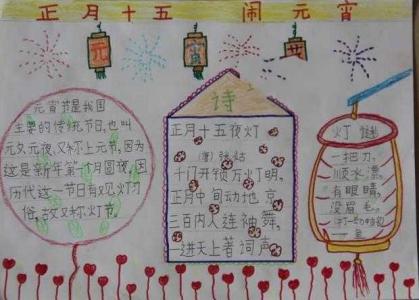 正月十五 闹元宵
元
宵
元宵节是我国
主要的传统节日,也叫
元夕、元夜,又称上元节,因为
这是新年第一个月圆夜,因
历代这一节日有观灯习
俗,故又称灯节。
诗
正月十五夜灯
(唐)张祜
千门开锁万灯明,
正月中旬动地京
三百内人连袖舞,
一进天上著词声
灯谜
一把刀,
顺水漂,
有眼睛,
没眉毛。